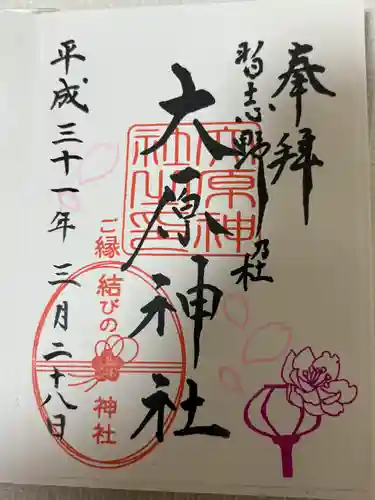 奉拝
習志野乃杜
大原神社
大原神社之印
平成三十一年 三月二十八日
ご縁結びの神社